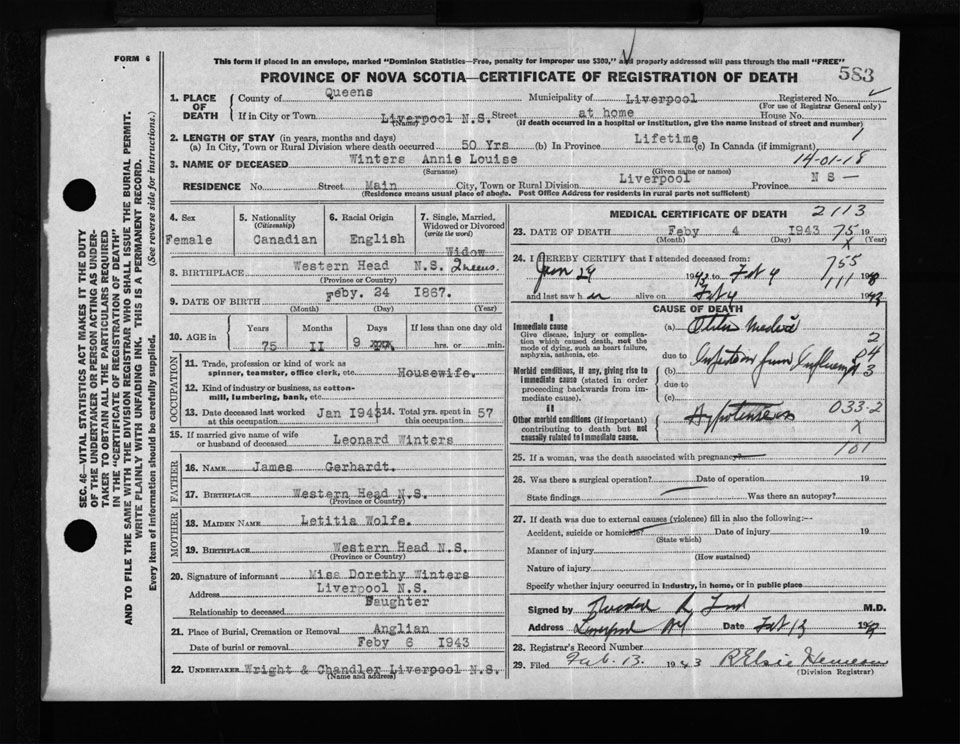 FORM 6
This form if placed in an envelope, marked "Dominion Statistics—Free, penalty for improper use $300," and properly addressed will pass through the mail "FREE"
PROVINCE OF NOVA SCOTIA—CERTIFICATE OF REGISTRATION OF DEATH
583
1. PLACE OF DEATH County of Queens Municipality of Liverpool Registered No.
(For use of Registrar General only)
If in City or Town Liverpool N.S. Street at home House No.
(Name) (If death occurred in a hospital or institution, give the name instead of street and number)
2. LENGTH OF STAY (in years, months and days) 1
(a) In City, Town or Rural Division where death occurred 50 Yrs (b) In Province Lifetime (c) In Canada (if immigrant)
3. NAME OF DECEASED Winters Annie Louise 14-01-18
(Surname) (Given name or names)
RESIDENCE No. Street Main City, Town or Rural Division Liverpool Province N S —
(Residence means usual place of abode. Post Office Address for residents in rural parts not sufficient)
SEC. 46—VITAL STATISTICS ACT MAKES IT THE DUTY
OF THE UNDERTAKER OR PERSON ACTING AS UNDER-
TAKER TO OBTAIN ALL THE PARTICULARS REQUIRED
IN THE "CERTIFICATE OF REGISTRATION OF DEATH"
AND TO FILE THE SAME WITH THE DIVISION REGISTRAR WHO SHALL ISSUE THE BURIAL PERMIT.
WRITE PLAINLY WITH UNFADING INK. THIS IS A PERMANENT RECORD.
Every item of information should be carefully supplied. (See reverse side for instructions.)
4. Sex
Female
5. Nationality
(Citizenship)
Canadian
6. Racial Origin
English
7. Single, Married,
Widowed or Divorced
(write the word)
Widow
8. BIRTHPLACE Western Head N.S. Queens.
(Province or Country)
9. DATE OF BIRTH Feby. 24 1867.
(Month) (Day) (Year)
10. AGE in
Years Months Days If less than one day old
75 II 9 hrs. or min.
OCCUPATION
11. Trade, profession or kind of work as
spinner, teamster, office clerk, etc. Housewife.
12. Kind of industry or business, as cotton-
mill, lumbering, bank, etc.
13. Date deceased last worked
at this occupation Jan 1943
14. Total yrs. spent in
this occupation 57
15. If married give name of wife
or husband of deceased Leonard Winters
FATHER
16. NAME James Gerhardt.
17. BIRTHPLACE Western Head N.S.
(Province or Country)
MOTHER
18. MAIDEN NAME Letitia Wolfe.
19. BIRTHPLACE Western Head N.S.
(Province or Country)
20. Signature of informant Miss Dorethy Winters
Address Liverpool N.S.
Relationship to deceased Daughter
21. Place of Burial, Cremation or Removal Anglian
Date of burial or removal Feby 6 1943
22. UNDERTAKER Wright & Chandler Liverpool N.S.
(Name and address)
MEDICAL CERTIFICATE OF DEATH 2113
23. DATE OF DEATH Feby 4 1943 75 19
(Month) (Day) X (Year)
24. I HEREBY CERTIFY that I attended deceased from: 755
Jan 29 1943 to Feb 4 111 194
and last saw h er alive on Feb 4 1943
CAUSE OF DEATH
I
Immediate cause
Give disease, injury or complica-
tion which caused death, not the
mode of dying, such as heart failure,
asphyxia, asthenia, etc.
(a) Otitis Media 2
due to
Morbid conditions, if any, giving rise to
immediate cause (stated in order
proceeding backwards from im-
mediate cause).
(b) Infection from Influenza 04
3
due to
(c)
II
Other morbid conditions (if important)
contributing to death but not
causally related to immediate cause.
Hypotension 033-2
X
101
25. If a woman, was the death associated with pregnancy?
26. Was there a surgical operation? Date of operation 19
State findings Was there an autopsy?
27. If death was due to external causes (violence) fill in also the following:—
Accident, suicide or homicide? Date of injury 19
(State which)
Manner of injury
(How sustained)
Nature of injury
Specify whether injury occurred in industry, in home, or in public place
Signed by M.D.
Address Liverpool NS Date Feb 13 194
28. Registrar's Record Number
29. Filed Feb. 13. 1943 R Elsie
(Division Registrar)